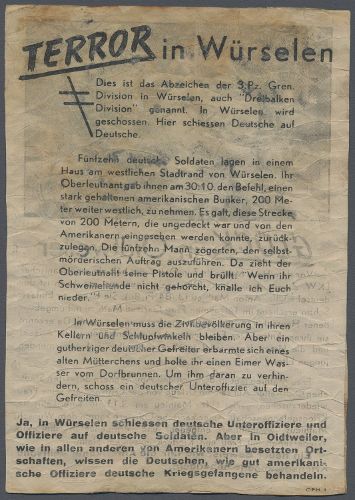 TERROR in Würselen
Dies ist das Abzeichen der 3.Pz. Gren.
Division in Würselen, auch "Dreibalken
Division" genannt. In Würselen wird
geschossen. Hier schiessen Deutsche auf
Deutsche.
Fünfzehn deutsche Soldaten lagen in einem
Haus am westlichen Stadtrand von Würselen. Ihr
Oberleutnant gab ihnen am 30.10. den Befehl, einen
stark gehaltenen amerikanischen Bunker, 200 Me-
ter weiter westlich, zu nehmen. Es galt, diese Strecke
von 200 Metern, die ungedeckt war und von den
Amerikanern eingesehen werden konnte, zurück-
zulegen. Die fünfzehn Mann zogerten, den selbst-
mörderischen Auftrag auszuführen. Da zieht der
Oberleutnant seine Pistole und brüllt: "Wenn ihr
Schweinehunde nicht gehorcht, knalle ich Euch
nieder."
In Würselen muss die Zivilbevölkerung in ihren
Kellern und Schlupfwinkeln bleiben. Aber ein
gutherziger deutscher Gefreiter erbarmte sich eines
alten Mütterchens und holte ihr einen Eimer Was-
ser vom Dorfbrunnen. Um ihm daran zu verhin-
dern, schoss ein deutscher Unteroffizier auf den
Gefreiten.
Ja, in Würselen schiessen deutsche Unteroffiziere und
Offiziere auf deutsche Soldaten. Aber in Oidtweiler,
wie in allen anderen von Amerikanern besetzten Ort-
schaften, wissen die Deutschen, wie gut amerikani-
sche Offiziere deutsche Kriegsgefangene behandeln.